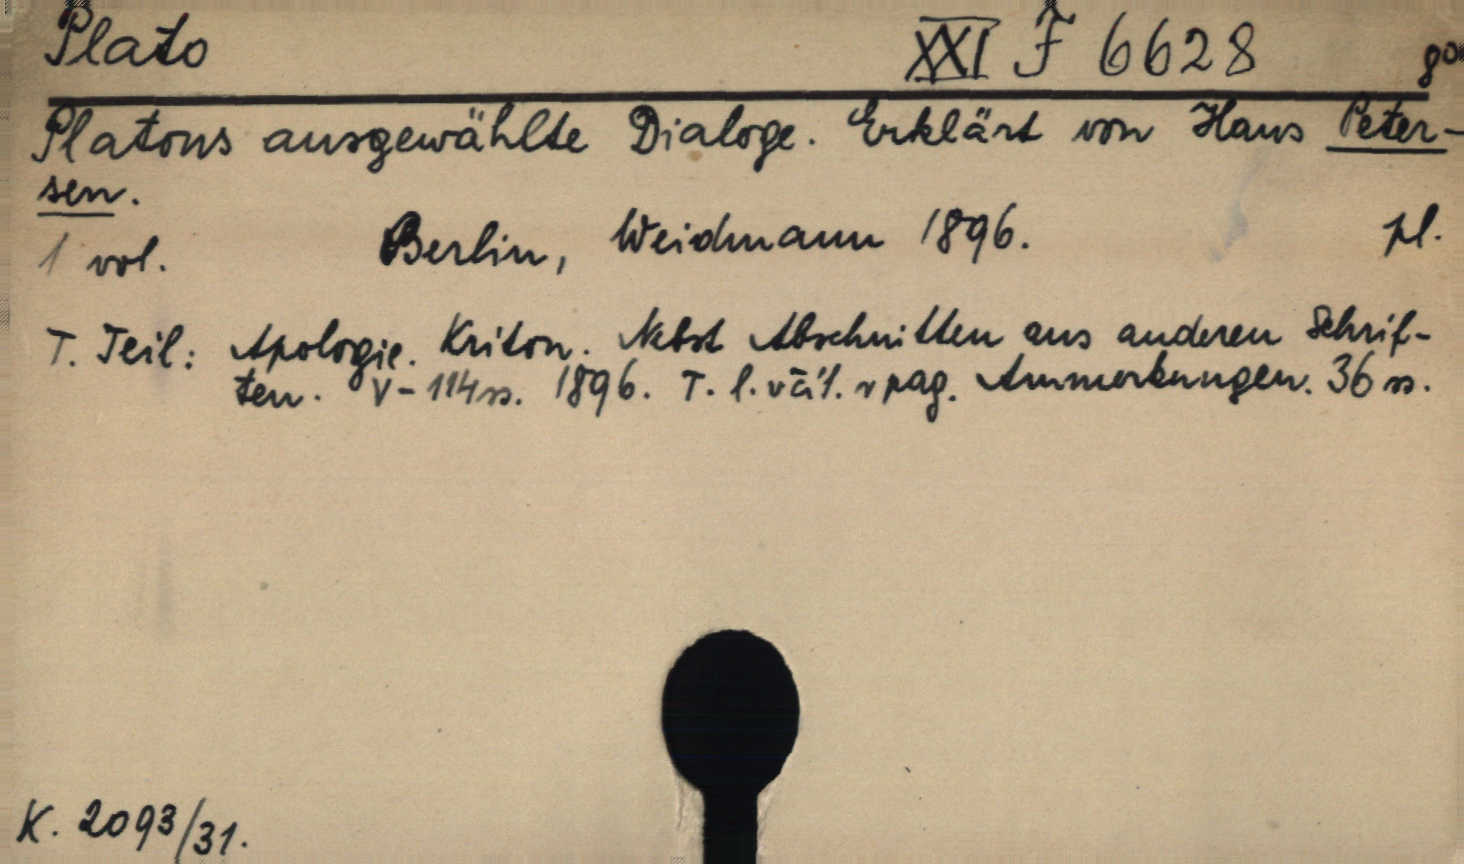 Plato XXI F 6628 8°
Platons ausgewählte Dialoge. Erklärt von Hans Peter-
sen.
1 vol. Berlin, Weidmann 1896. pl.
T. Teil: Apologie. Kriton. Nebst Abschnitten aus anderen Schrif-
ten. V-114 ss. 1896. T. l. pag. Anmerkungen. 36 ss.
K. 2093/31.